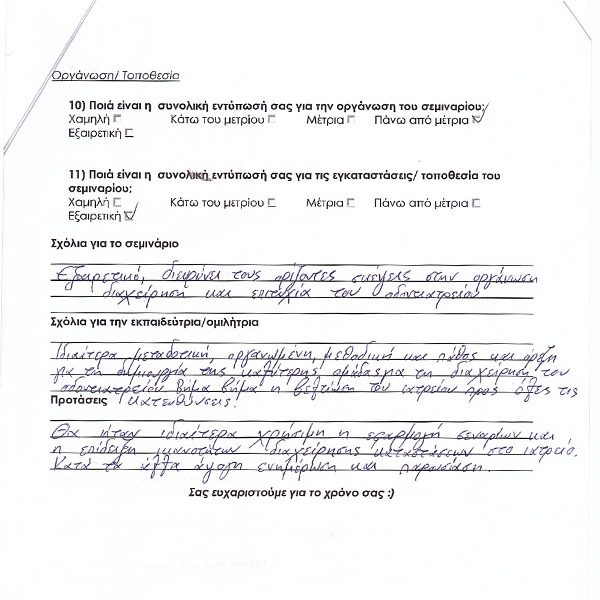 Οργάνωση/ Τοποθεσία
10) Ποιά είναι η συνολική εντύπωσή σας για την οργάνωση του σεμιναρίου;
Χαμηλή Κάτω του μετρίου Μέτρια Πάνω από μέτρια
Εξαιρετική
11) Ποιά είναι η συνολική εντύπωσή σας για τις εγκαταστάσεις/ τοποθεσία του
σεμιναρίου;
Χαμηλή Κάτω του μετρίου Μέτρια Πάνω από μέτρια
Εξαιρετική
Σχόλια για το σεμινάριο
Εξαιρετικό, διευρύνει τους ορίζοντες σκέψεις στην οργάνωση
διαχείρηση και επιτυχία του οδοντιατρείου
Σχόλια για την εκπαιδεύτρια/ομιλήτρια
Ιδιαίτερα μεταδοτική, οργανωμένη, μεθοδική και πάθος και όρεξη
για τη δημιουργία της καλύτερης ομάδας για τη διαχείρηση του
οδοντιατρείου βήμα βήμα η βελτίωση του ιατρείου προς όλες τις
Προτάσεις κατευθύνσεις!
Θα ήταν ιδιαίτερα χρήσιμη η εφαρμογή σεναρίων και
η επίδειξη ικανοτήτων διαχείρησης καταστάσεων στο ιατρείο.
Κατά τα άλλα άψογη ενημέρωση και παρουσίαση.
Σας ευχαριστούμε για το χρόνο σας :)